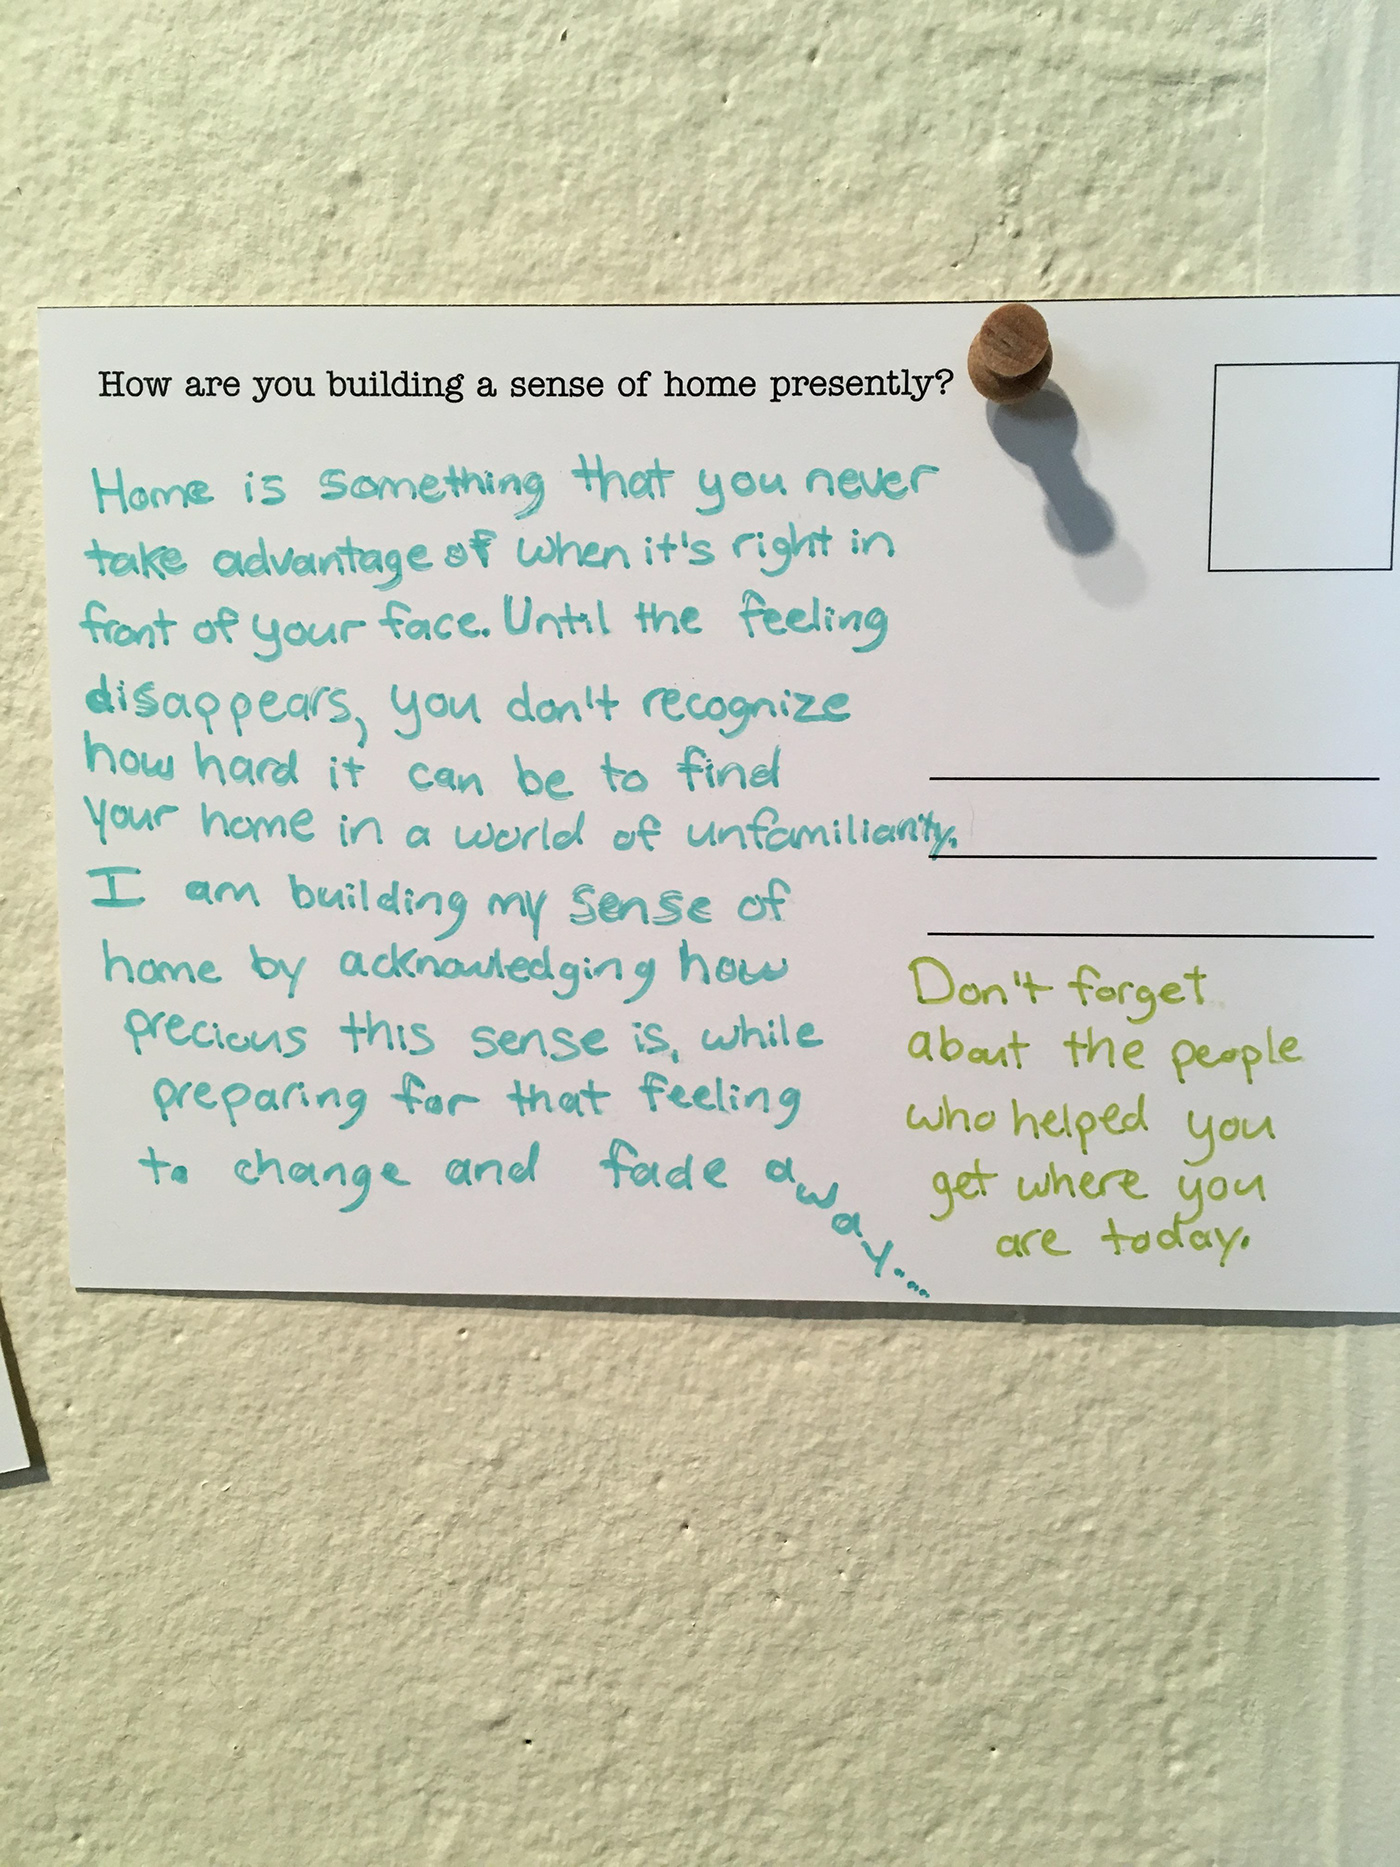 How are you building a sense of home presently?
Home is something that you never
take advantage of when it's right in
front of your face. Until the feeling
disappears, you don't recognize
how hard it can be to find
your home in a world of unfamilianity.
I am building my sense of
home by acknowledging how
precious this sense is, while
preparing for that feeling
to change and fade away....
Don't forget
about the people
who helped you
get where you
are today.